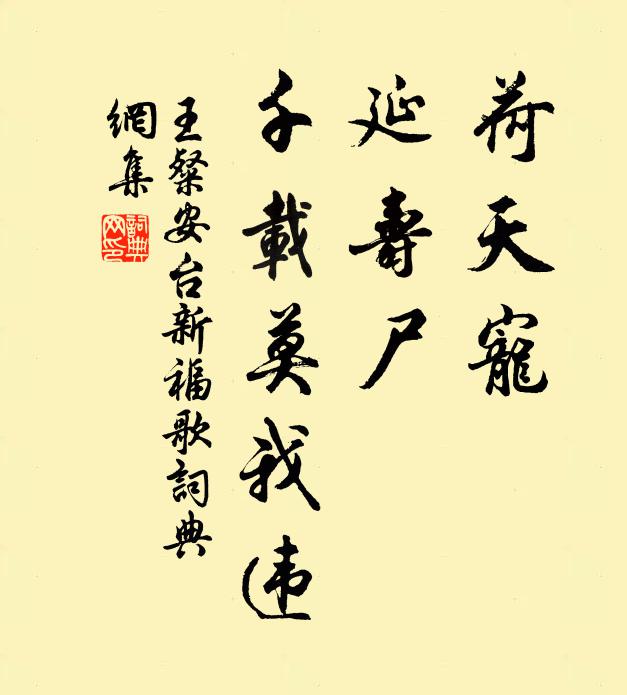 荷天寵
延壽尸
千載莫我违
王粲安台新福歌詞典
網集
詞典網印